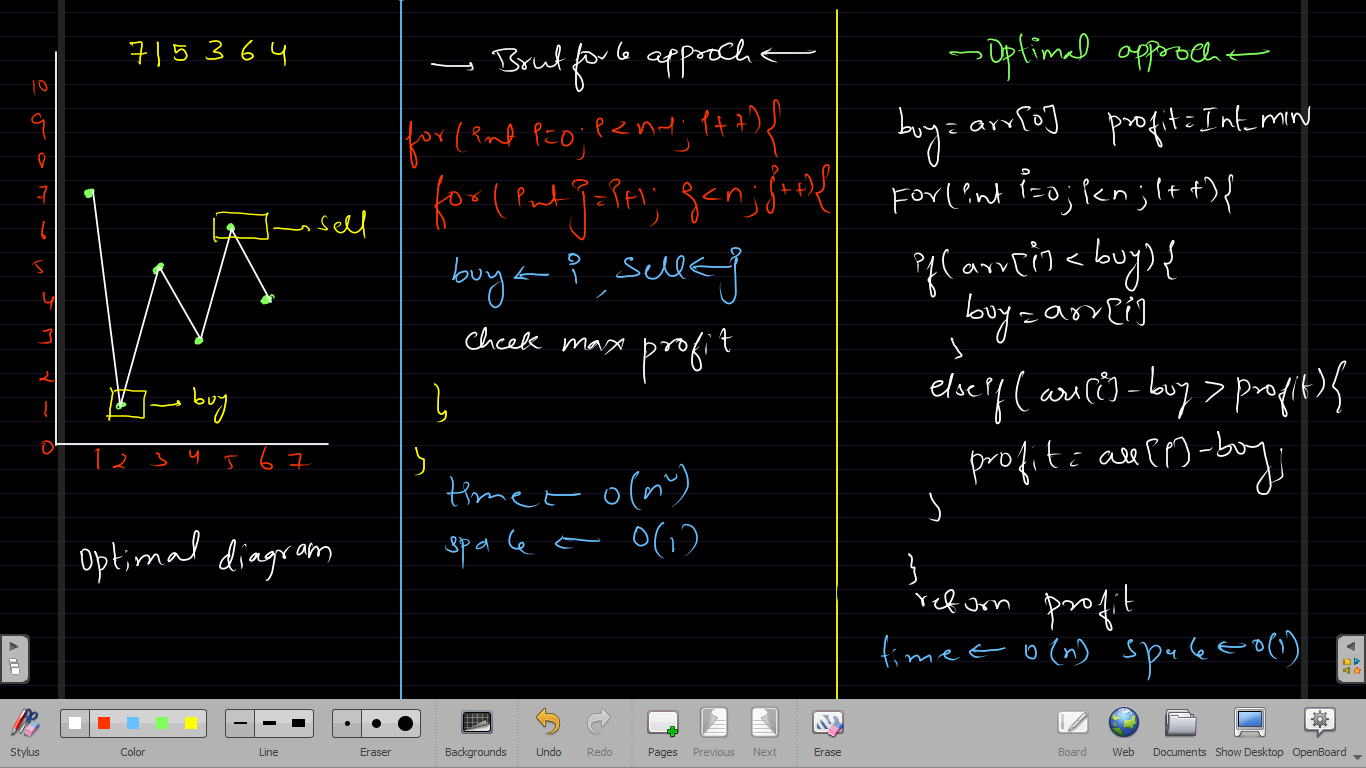 7 1 5 3 6 4
10
9
8
7
6
5
4
3
2
1
0
→ sell
→ buy
1 2 3 4 5 6 7
Optimal diagram
→ Brutforce approch ←
for(int i=0; i<n-1; i++){
for(int j=i+1; j<n; j++){
buy ← i , sell ← j
check max profit
}
}
time ← O(n²)
space ← O(1)
→ Optimal approch ←
buy = arr[0] profit = Int_min
For(int i=0; i<n; i++){
if(arr[i] < buy){
buy = arr[i]
}
elseif(arr[i] - buy > profit){
profit = arr[i] - buy;
}
}
return profit
time ← O(n) space ← O(1)
Stylus
Color
Line
Eraser
Backgrounds
Undo
Redo
Pages
Previous
Next
Erase
Board
Web
Documents
Show Desktop
OpenBoard